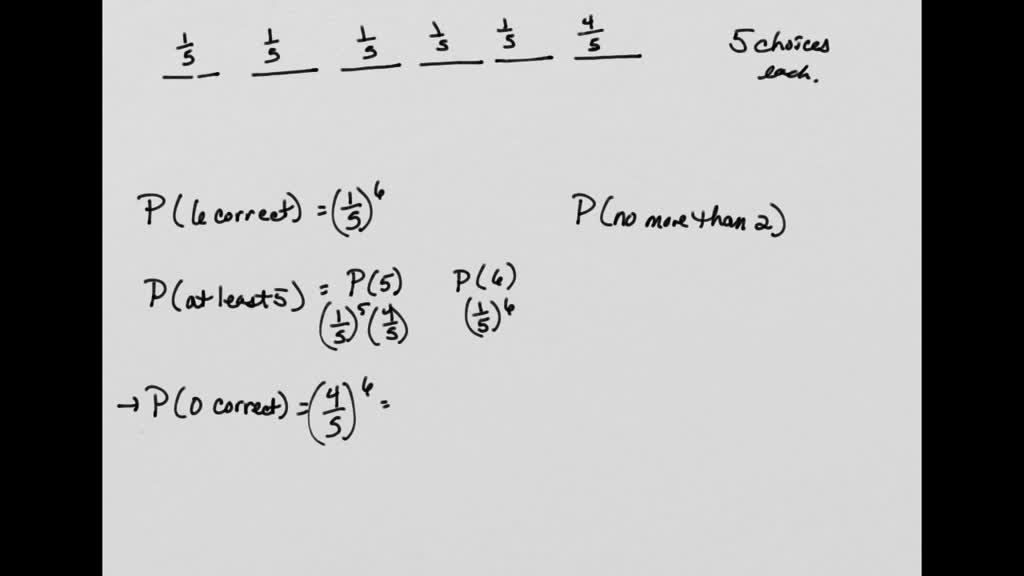 1/5 1/5 1/5 1/5 1/5 4/5
5 choices
each.
P(6 correct) = (1/5)^6
P(no more than 2)
P(at least 5) = P(5) P(6)
(1/5)^5 (4/5) (1/5)^6
→ P(0 correct) = (4/5)^6 =